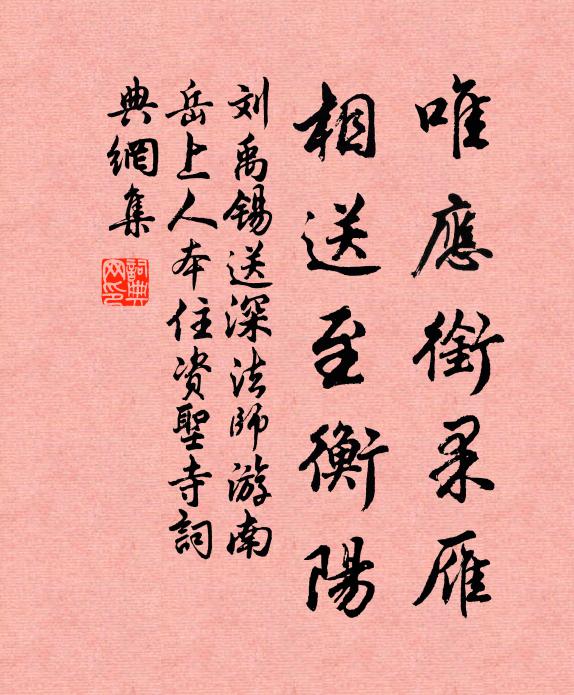 唯應銜果雁
相送至衡陽
刘禹锡送深法師游南
岳上人本住资聖寺詞
典網集
詞典網印